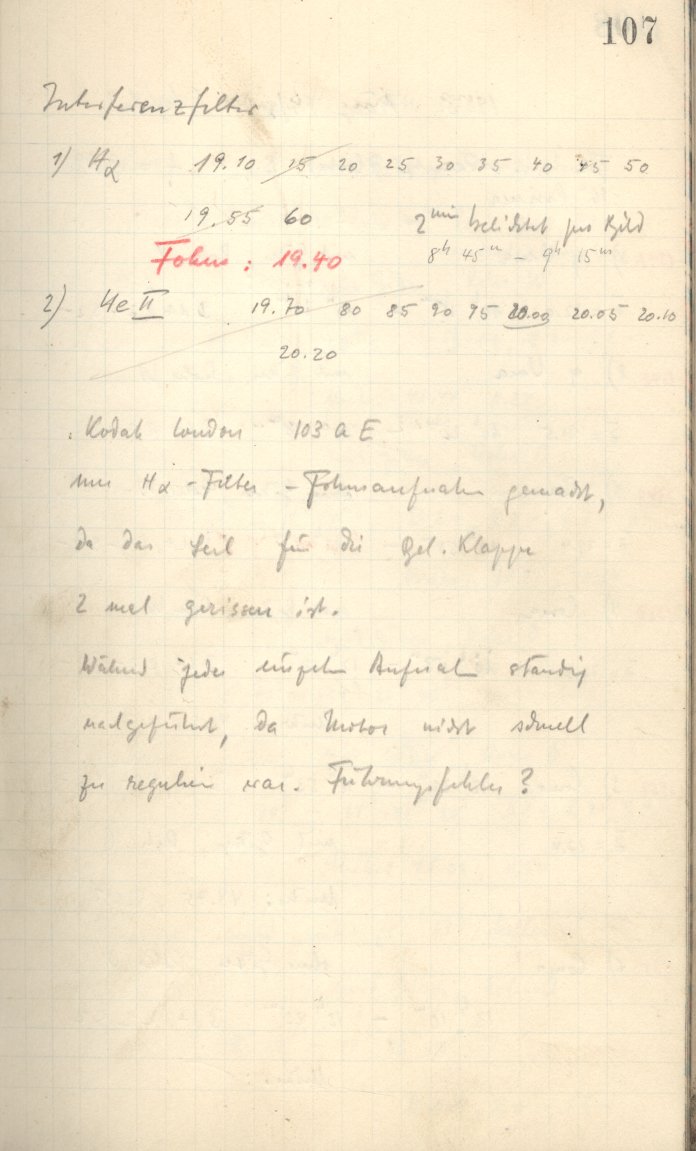 107
Interferenzfilter
1) Hα 19.10 15 20 25 30 35 40 45 50
19.55 60 2 min belichtet pro Bild
Fokus : 19.40 8h 45m – 9h 15m
2) He II 19.70 80 85 90 95 20.00 20.05 20.10
20.20
Kodak London 103 a E
nur Hα - Filter - Fokusaufnahm gemacht,
da das Seil für die Bel. Klappe
2 mal gerissen ist.
Während jeder einzeln Aufnahm ständig
nachgeführt, da Motor nicht schnell
zu regulieren war. Führungsfehler ?